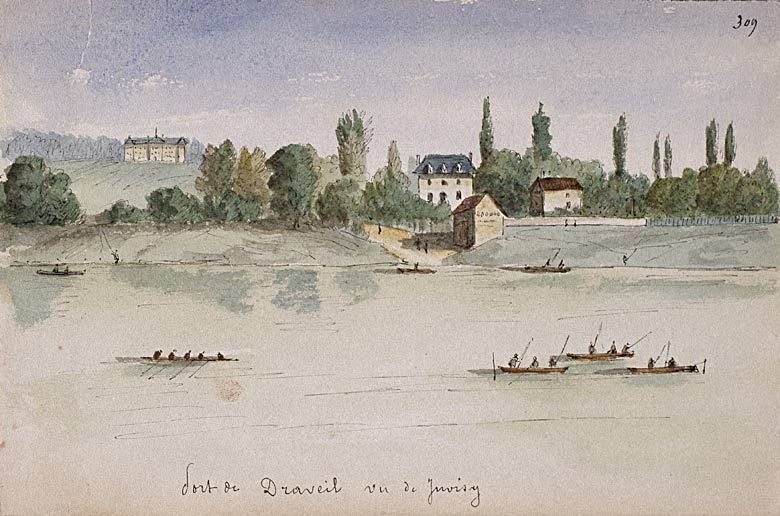 309
Port de Draveil vu de Juvisy